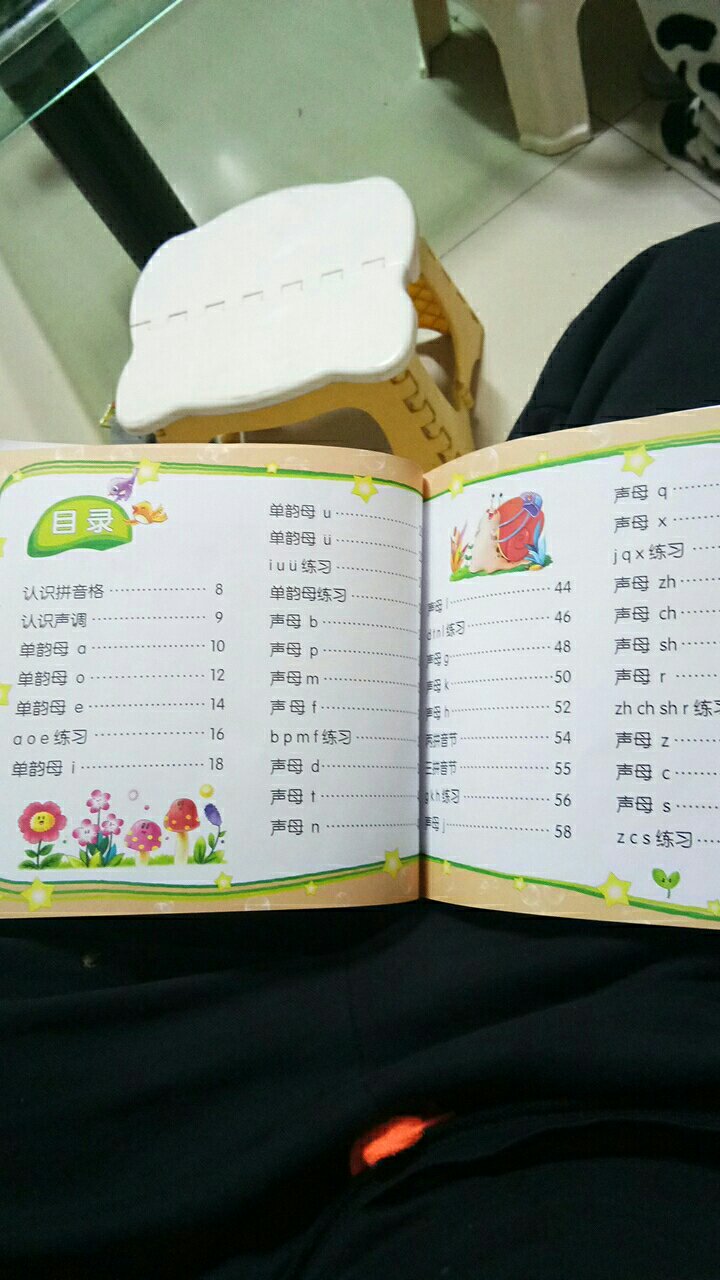 目录
认识拼音格 ………………… 8
认识声调 ………………… 9
单韵母 a ………………… 10
单韵母 o ………………… 12
单韵母 e ………………… 14
a o e 练习 ………………… 16
单韵母 i ………………… 18
单韵母 u …………………
单韵母 ü …………………
i u ü 练习 …………………
单韵母练习 …………………
声母 b …………………
声母 p …………………
声母 m …………………
声母 f …………………
b p m f 练习 …………………
声母 d …………………
声母 t …………………
声母 n …………………
声母 l ………………… 44
d t n l 练习 ………………… 46
声母 g ………………… 48
声母 k ………………… 50
声母 h ………………… 52
两拼音节 ………………… 54
三拼音节 ………………… 55
g k h 练习 ………………… 56
声母 j ………………… 58
声母 q ………
声母 x ………
j q x 练习 ………
声母 zh ………
声母 ch ………
声母 sh ………
声母 r ………
zh ch sh r 练习
声母 z ………
声母 c ………
声母 s ………
z c s 练习 ………